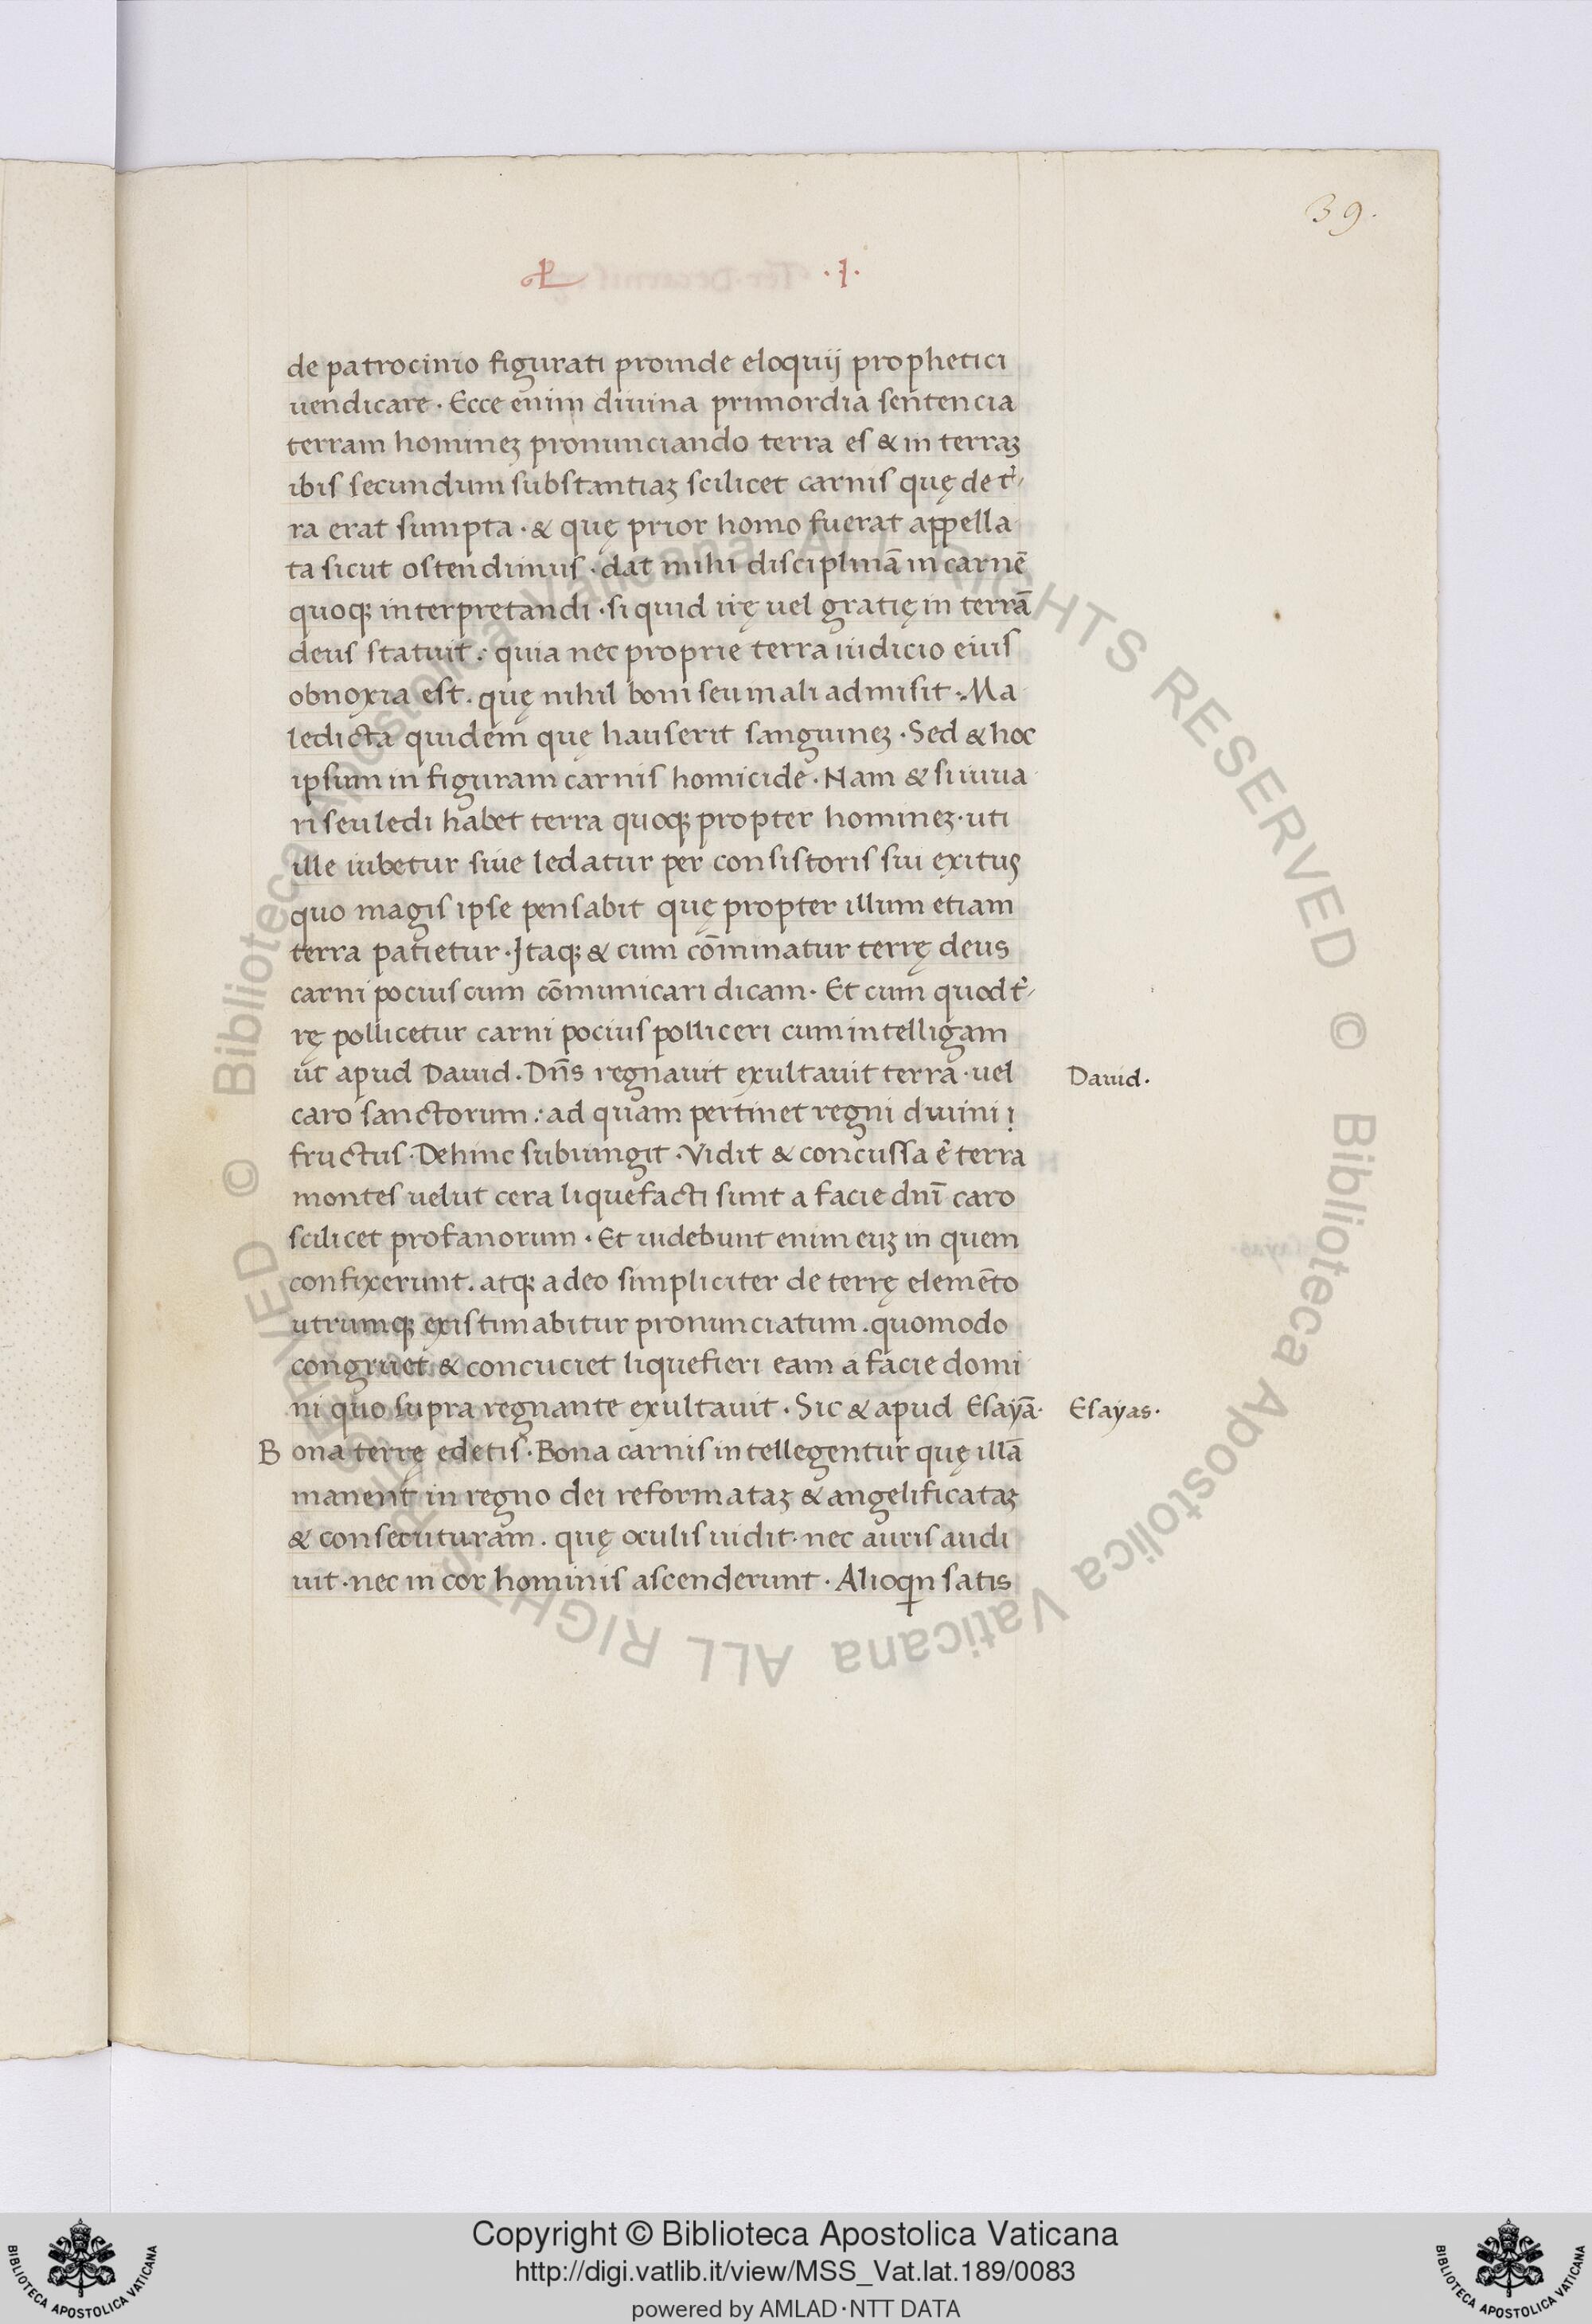 39.
L .I.
de patrocinio figurati proinde eloquij prophetici
uendicare · Ecce enim diuina primordia sentencia
terram homineꝫ pronunciando terra es & in terraꝫ
ibis secundum substantiaꝫ scilicet carnis quę de t᷑-
ra erat sumpta · & quę prior homo fuerat appella
ta sicut ostendimus · dat mihi disciplinā in carnē
quoqꝫ interpretandi · si quid irę uel gratię in terrā
deus statuit : quia nec proprie terra iudicio eius
obnoxia est . quę nihil boni seu mali admisit . Ma
ledicta quidem quę hauserit sanguineꝫ · Sed & hoc
ipsum in figuram carnis homicide · Nam & si iuua
ri seu ledi habet terra quoqꝫ propter homineꝫ · uti
ille iubetur siue ledatur per consistoris sui exituꝫ
quo magis ipse pensabit quę propter illum etiam
terra patietur · Itaqꝫ & cum cōminatur terrę deus
carni pocius cum cōmunicari dicam · Et cum quod t᷑-
rę pollicetur carni pocius polliceri cum intelligam
ut apud Dauid . Dn̄s regnauit exultauit terra · uel
Dauid .
caro sanctorum : ad quam pertinet regni diuini ı
fructus · Dehinc subiungit · Vidit & concussa ē terra
montes uelut cera liquefacti sunt a facie dnī caro
scilicet profanorum · Et uidebunt enim euꝫ in quem
confixerunt . atqꝫ adeo simpliciter de terrę elemēto
utrumqꝫ existimabitur pronunciatum . quomodo
congruet & concuciet liquefieri eam a facie domi
ni quo supra regnante exultauit · Sic & apud Esayā ·
Esayas ·
Bona terrę edetis · Bona carnis intellegentur quę illā
manent in regno dei reformataꝫ & angelificataꝫ
& consecuturam . quę oculis uidit · nec auris audi
uit · nec in cor hominis ascenderunt · Alioqn satis
© Biblioteca Apostolica Vaticana ALL RIGHTS RESERVED © Biblioteca Apostolica Vaticana ALL RIGHTS RESERVED
Copyright © Biblioteca Apostolica Vaticana
http://digi.vatlib.it/view/MSS_Vat.lat.189/0083
powered by AMLAD·NTT DATA
BIBLIOTECA APOSTOLICA VATICANA
BIBLIOTECA APOSTOLICA VATICANA